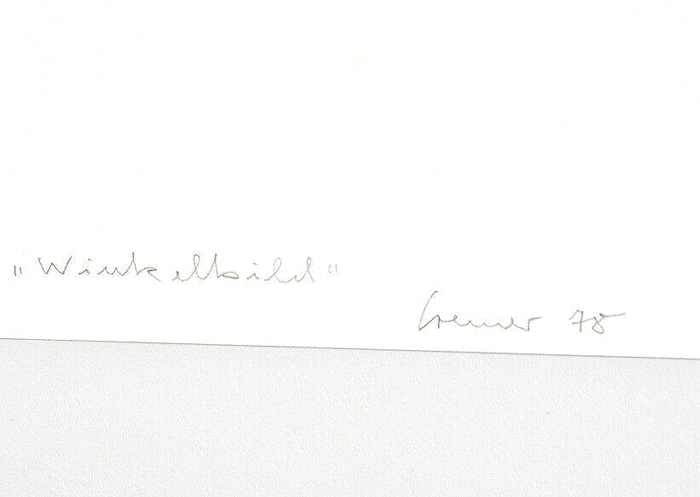 „Winkelbild“
Cremer 78